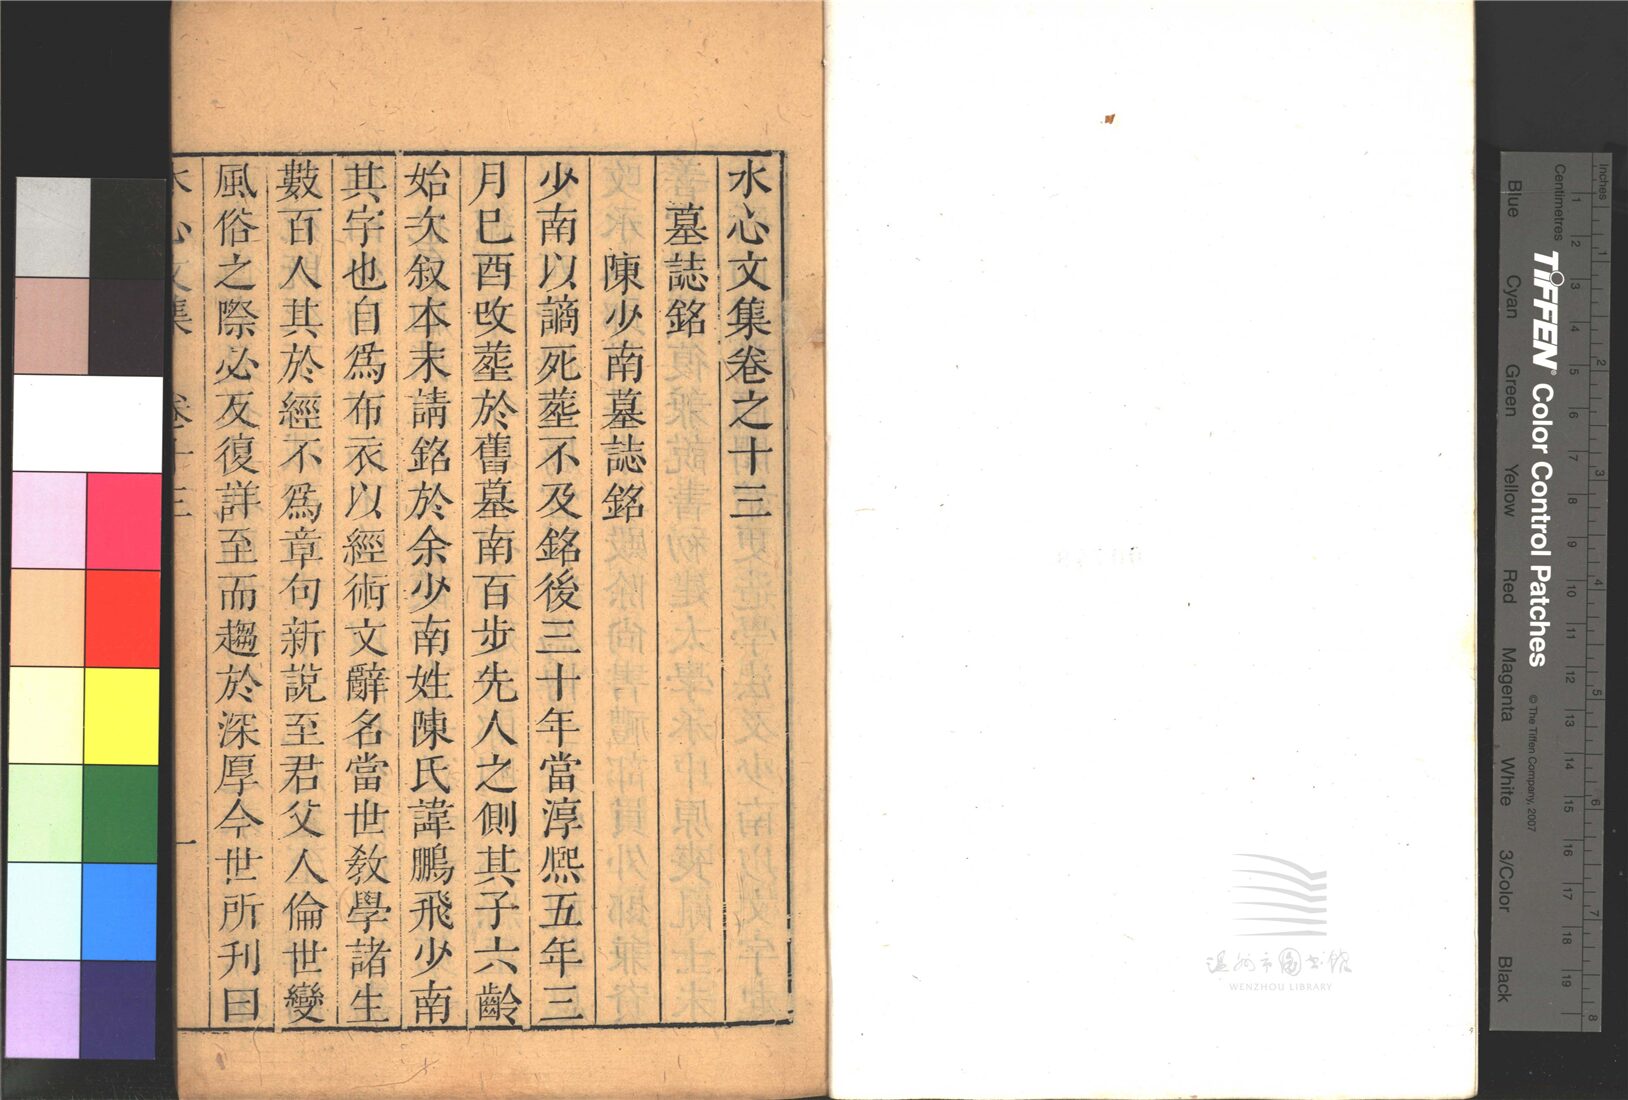 水心文集卷之十三
墓誌銘
陳少南墓誌銘
少南以謫死塟不及銘後三十年當淳熈五年三
月巳酉改塟於舊墓南百步先人之側其子六齡
始次叙本末請銘於余少南姓陳氏諱鵬飛少南
其字也自爲布衣以經術文辭名當世教學諸生
數百人其於經不爲章句新説至君父人倫世變
風俗之際必反復詳至而趨於深厚今世所刋曰
水心文集 卷十三 一
温州市图书馆
WENZHOU LIBRARY
Inches
Centimetres
TIFFEN® Color Control Patches
© The Tiffen Company, 2007
Blue Cyan Green Yellow Red Magenta White 3/Color Black
1 2 3 4 5 6 7 8 9 10 11 12 13 14 15 16 17 18 19
1 2 3 4 5 6 7 8